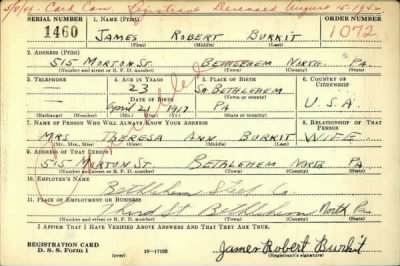 5/8/44 - Card Can. Registrant Deceased August 15-1942
SERIAL NUMBER 1. NAME (Print) ORDER NUMBER
1460 JAMES ROBERT BURKIT 1072
(First) (Middle) (Last)
2. ADDRESS (Print)
515 MORTON ST. BETHLEHEM NORTH. PA
(Number and street or R. F. D. number) (Town) (County) (State)
3. TELEPHONE 4. AGE IN YEARS 5. PLACE OF BIRTH 6. COUNTRY OF CITIZENSHIP
23 So BETHLEHEM
DATE OF BIRTH (Town or county)
April 21 1917 PA U.S.A
(Exchange) (Number) (Mo.) (Day) (Yr.) (State or country)
7. NAME OF PERSON WHO WILL ALWAYS KNOW YOUR ADDRESS 8. RELATIONSHIP OF THAT PERSON
MRS THERESA ANN BURKIT WIFE
(Mr., Mrs., Miss) (First) (Middle) (Last)
9. ADDRESS OF THAT PERSON
515 MORTON ST. BETHLEHEM NORTH PA
(Number and street or R. F. D. number) (Town) (County) (State)
10. EMPLOYER'S NAME
Bethlehem Steel Co.
11. PLACE OF EMPLOYMENT OR BUSINESS
Third St Bethlehem North Pa
(Number and street or R. F. D. number) (Town) (County) (State)
I AFFIRM THAT I HAVE VERIFIED ABOVE ANSWERS AND THAT THEY ARE TRUE.
REGISTRATION CARD
D. S. S. Form 1 16-17105 James Robert Burkit
(Registrant's signature)